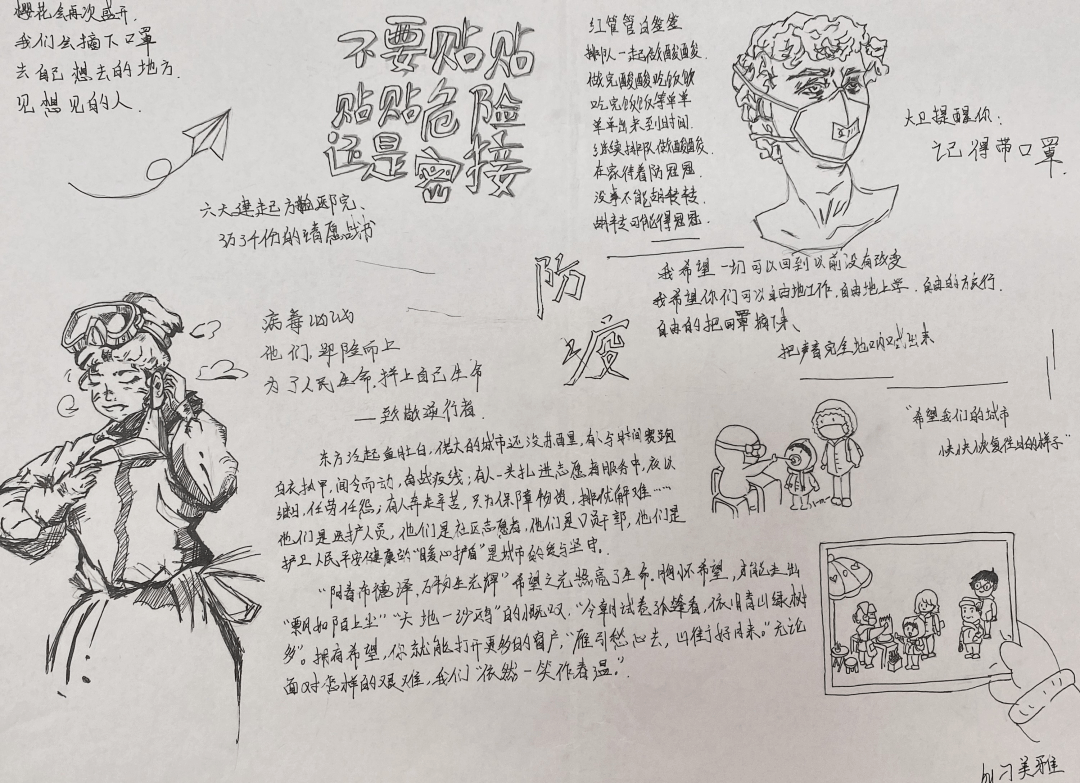 樱花会再次盛开.
我们会摘下口罩
去自己想去的地方.
见想见的人.
不要贴贴
贴贴危险
还是密接
红管管白签签
排队一起做酸酸.
做完酸酸吃饭饭
吃完饭饭等单单
单单出来到时间.
继续排队做酸酸.
在家待着防冠冠.
没事不能胡转转.
胡转可能得冠冠.
大卫提醒你:
记得带口罩.
六天建起方舱医院、
的请愿战书
防
疫
我希望一切可以回到以前没有改变
我希望你们可以自由地工作,自由地上学.自由的旅行.
自由的把口罩摘下来、
把声音完全地呐喊出来
病毒汹汹
他们,冒险而上
为了人民生命,拼上自己生命
——致敬逆行者.
"希望我们的城市
快快恢复往日的样子"
东方泛起鱼肚白,偌大的城市还没苏醒,有人与时间赛跑
白衣执甲,闻令而动,奋战疫线;有人一头扎进志愿者服务中,夜以
继日,任劳任怨;有人奔走辛苦,只为保障物资,排忧解难……
他们是医护人员,他们是社区志愿者,他们是党员干部,他们是
护卫人民平安健康的"暖心护盾"是城市的坚守.
"阳春布德泽,万物生光辉"希望之光照亮了生命.胸怀希望,方能走出
"飘如陌上尘""天地一沙鸥"的慨叹,"今朝试卷孤篷看,依旧青山绿树
多".拥有希望,你就能打开更多的窗户,"雁引愁心去,山衔好月来."无论
面对怎样的艰难,我们"依然一笑作春温."
by刁美雅